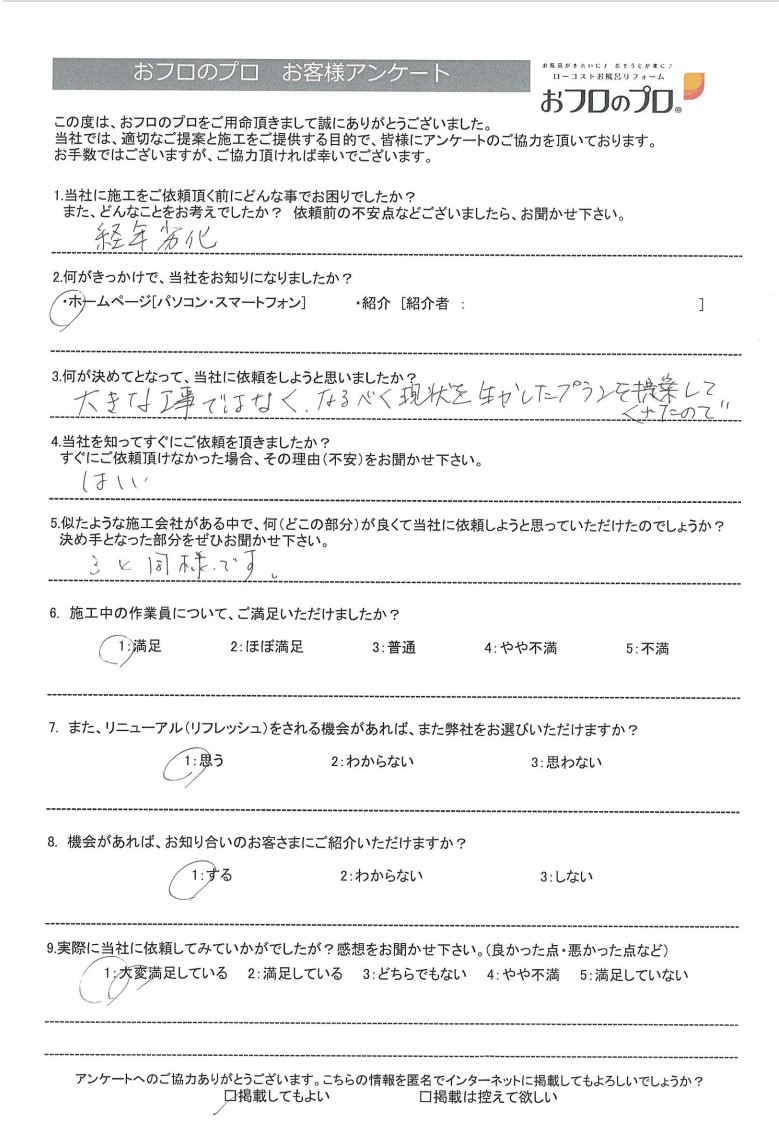 おフロのプロ お客様アンケート
お風呂がきれいに♪ おそうじが楽に♪
ローコストお風呂リフォーム
おフロのプロ®
この度は、おフロのプロをご用命頂きまして誠にありがとうございました。
当社では、適切なご提案と施工をご提供する目的で、皆様にアンケートのご協力を頂いております。
お手数ではございますが、ご協力頂ければ幸いでございます。
1.当社に施工をご依頼頂く前にどんな事でお困りでしたか?
また、どんなことをお考えでしたか? 依頼前の不安点などございましたら、お聞かせ下さい。
経年劣化
2.何がきっかけで、当社をお知りになりましたか?
・ホームページ[パソコン・スマートフォン] ・紹介 [紹介者 : ]
3.何が決めてとなって、当社に依頼をしようと思いましたか?
大きな工事ではなく、なるべく現状を生かしたプランを提案して
くれたので
4.当社を知ってすぐにご依頼を頂きましたか?
すぐにご依頼頂けなかった場合、その理由(不安)をお聞かせ下さい。
はい
5.似たような施工会社がある中で、何(どこの部分)が良くて当社に依頼しようと思っていただけたのでしょうか?
決め手となった部分をぜひお聞かせ下さい。
3と同様です。
6. 施工中の作業員について、ご満足いただけましたか?
1:満足 2:ほぼ満足 3:普通 4:やや不満 5:不満
7. また、リニューアル(リフレッシュ)をされる機会があれば、また弊社をお選びいただけますか?
1:思う 2:わからない 3:思わない
8. 機会があれば、お知り合いのお客さまにご紹介いただけますか?
1:する 2:わからない 3:しない
9.実際に当社に依頼してみていかがでしたか?感想をお聞かせ下さい。(良かった点・悪かった点など)
1:大変満足している 2:満足している 3:どちらでもない 4:やや不満 5:満足していない
アンケートへのご協力ありがとうございます。こちらの情報を匿名でインターネットに掲載してもよろしいでしょうか?
□掲載してもよい □掲載は控えて欲しい